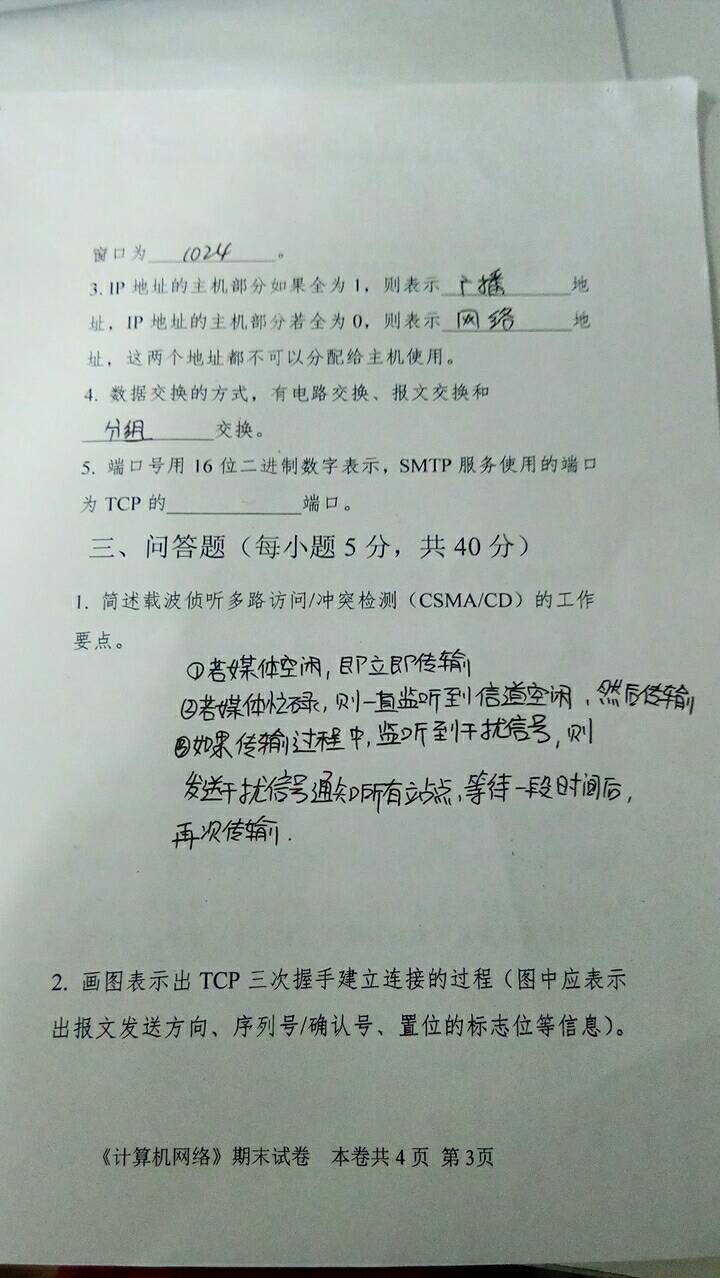 窗口为 1024 。
3. IP 地址的主机部分如果全为 1，则表示 广播 地
址，IP 地址的主机部分若全为 0，则表示 网络 地
址，这两个地址都不可以分配给主机使用。
4. 数据交换的方式，有电路交换、报文交换和
分组 交换。
5. 端口号用 16 位二进制数字表示，SMTP 服务使用的端口
为 TCP 的____________端口。
三、问答题（每小题 5 分，共 40 分）
1. 简述载波侦听多路访问/冲突检测（CSMA/CD）的工作
要点。
①若媒体空闲，即立即传输
②若媒体忙碌，则一直监听到信道空闲，然后传输
③如果传输过程中，监听到干扰信号，则
发送干扰信号通知所有站点，等待一段时间后，
再次传输.
2. 画图表示出 TCP 三次握手建立连接的过程（图中应表示
出报文发送方向、序列号/确认号、置位的标志位等信息）。
《计算机网络》期末试卷 本卷共 4 页 第 3页